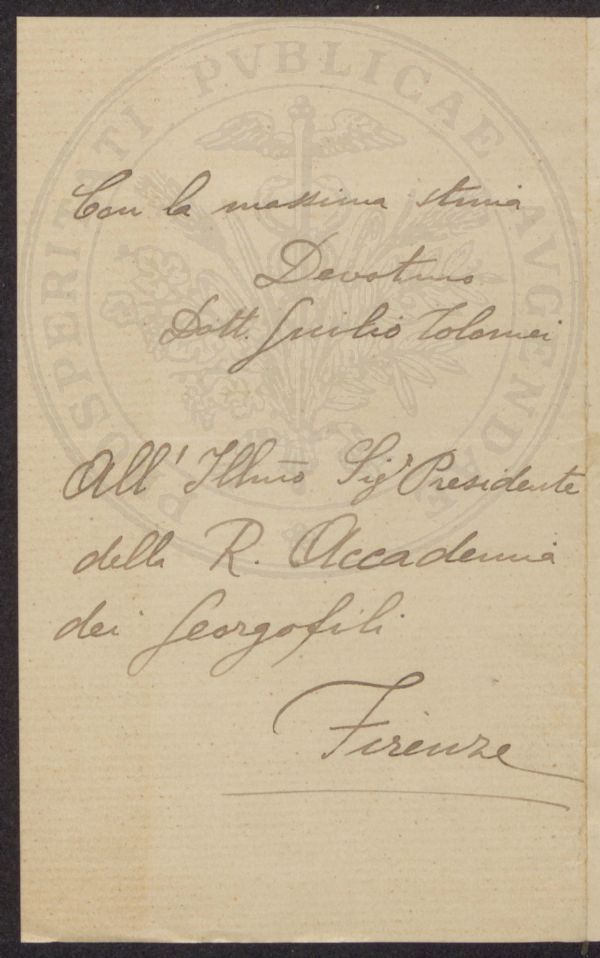 PROSPERITATI PVBLICAE AVGENDAE
Con la massima stima
Devotmo
Dott. Giulio Tolomei
All' Illmo Sigr Presidente
della R. Accademia
dei Georgofili
Firenze